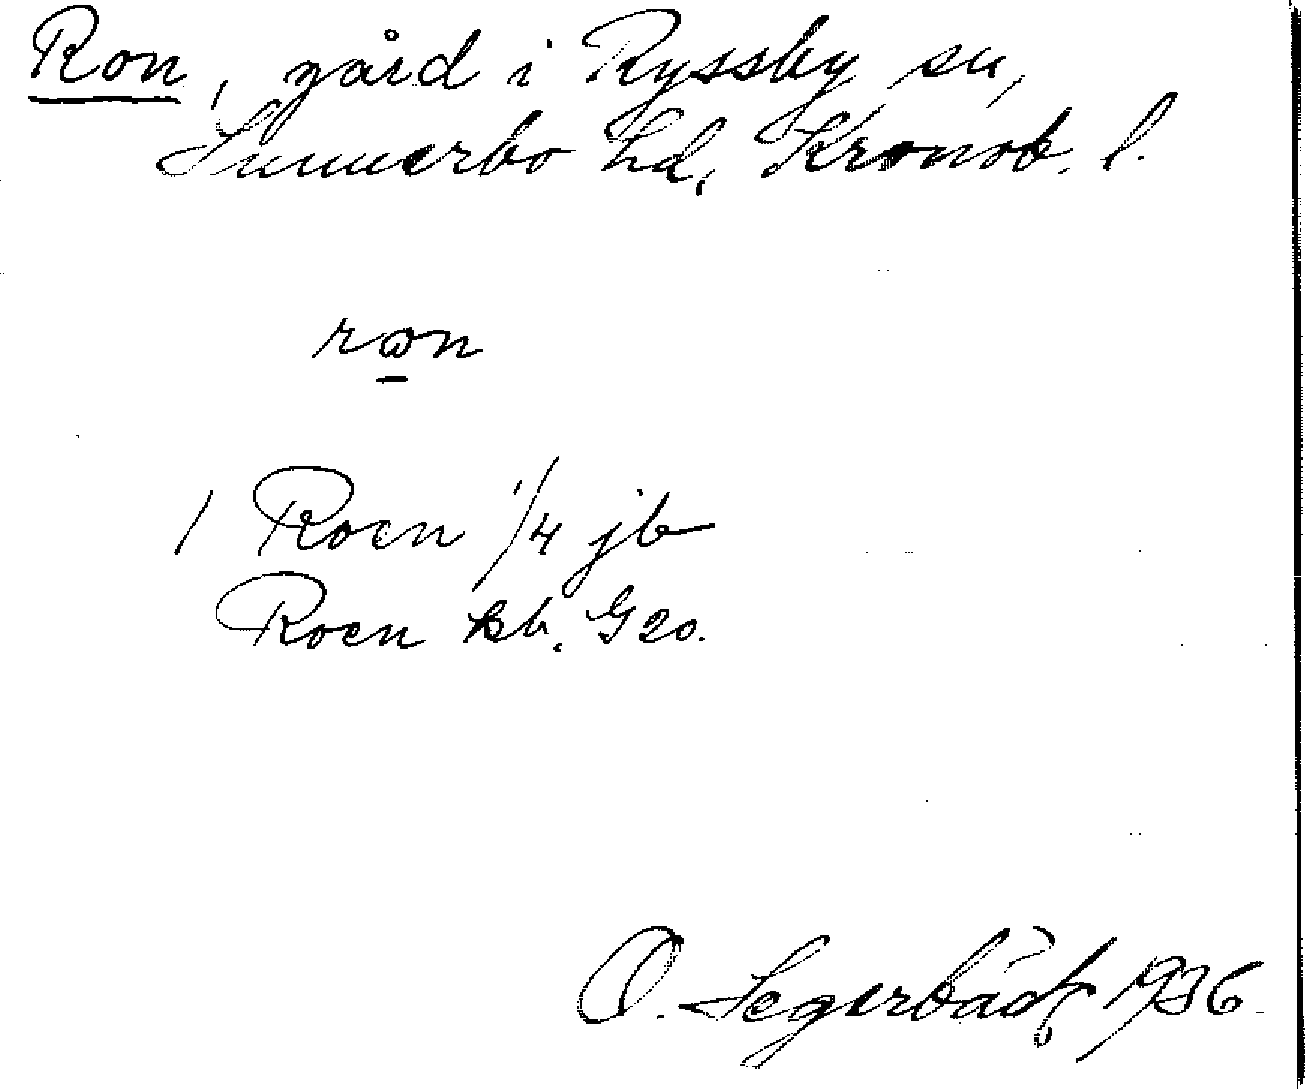 Ron, gård i Ryssby sn,
Sunnerbo hd, Kronob. l.
ron
1 Roen 1/4 jb
Roen kb. G20.
O. Segerbäck 1936.